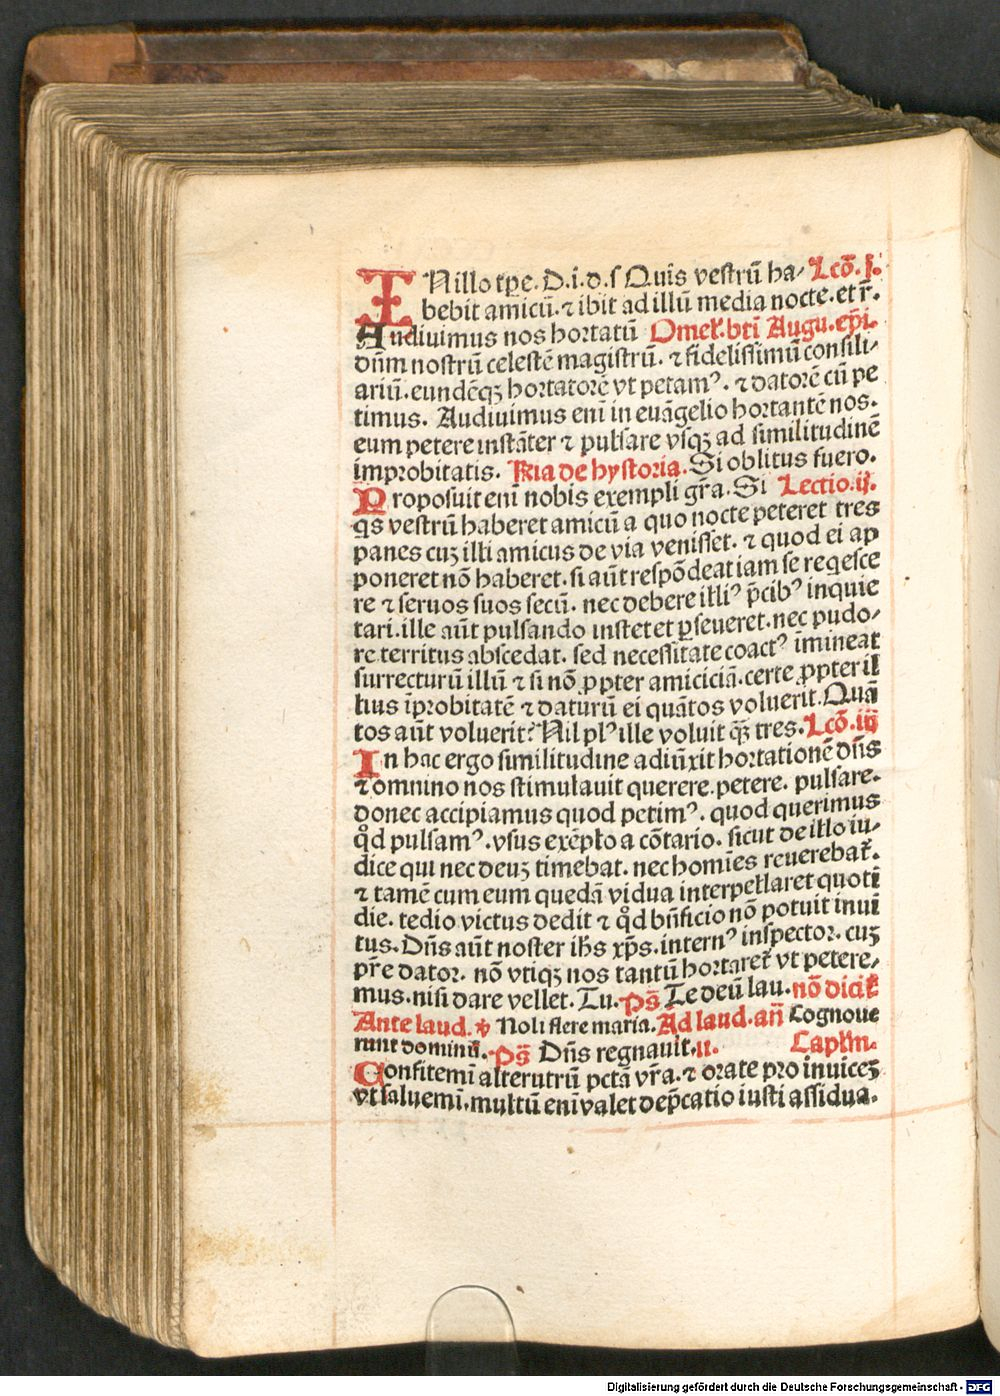 IN illo tp̄e. D. i. d. s Quis vestrū ha- Lcō. j.
bebit amicū. ⁊ ibit ad illū media nocte. et r̄.
Audiuimus nos hortatū Omeł. bti Augu. ep̄i.
dn̄m nostrū celestē magistrū. ⁊ fidelissimū consili-
ariū. eundēqꝫ hortatorē vt petamꝰ. ⁊ datorē cū pe
timus. Audiuimus eni in euāgelio hortantē nos.
eum petere instāter ⁊ pulsare vsqꝫ ad similitudinē
improbitatis. R̄ia de hystoria. Si oblitus fuero.
Proposuit eni nobis exempli gr̄a. Si Lectio. ij.
qs vestrū haberet amicū a quo nocte peteret tres
panes cuꝫ illi amicus de via venisset. ⁊ quod ei ap
poneret nō haberet. si aūt respōdeat iam se reqesce
re ⁊ seruos suos secū. nec debere illiꝰ p̄cibꝰ inquie
tari. ille aūt pulsando instet et ꝑseueret. nec pudo-
re territus abscedat. sed necessitate coactꝰ īmineat
surrecturū illū ⁊ si nō ꝓpter amiciciā. certe ꝓpter il
lius īprobitatē ⁊ daturū ei quātos voluerit. Quā
tos aūt voluerit? Nil plꝰ ille voluit qꝫ̄ tres. Lcō. iij
In hac ergo similitudine adiūxit hortationē dn̄s
⁊ omnino nos stimulauit querere. petere. pulsare.
donec accipiamus quod petimꝰ. quod querimus
qd̄ pulsamꝰ. vsus exēpło a cōtario. sicut de illo iu-
dice qui nec deuꝫ timebat. nec homīes reuerebat̄.
⁊ tamē cum eum quedā vidua interpellaret quoti
die. tedio victus dedit ⁊ qd̄ bn̄ficio nō potuit inui
tus. Dn̄s aūt noster ihs xp̄s. internꝰ inspector. cuꝫ
pr̄e dator. nō vtiqꝫ nos tantū hortaret̄ vt petere-
mus. nisi dare vellet. Tu. Ps̄ Te deū lau. nō dicit̄
Ante laud. ꝟ Noli flere maria. Ad laud. an̄ Cognoue
runt dominū. Ps̄ Dn̄s regnauit. ii. Capłm.
Confitemī alterutrū pctā vr̄a. ⁊ orate pro inuiceꝫ
vt saluemī. multū eni valet dep̄catio iusti assidua.
Digitalisierung gefördert durch die Deutsche Forschungsgemeinschaft - DFG